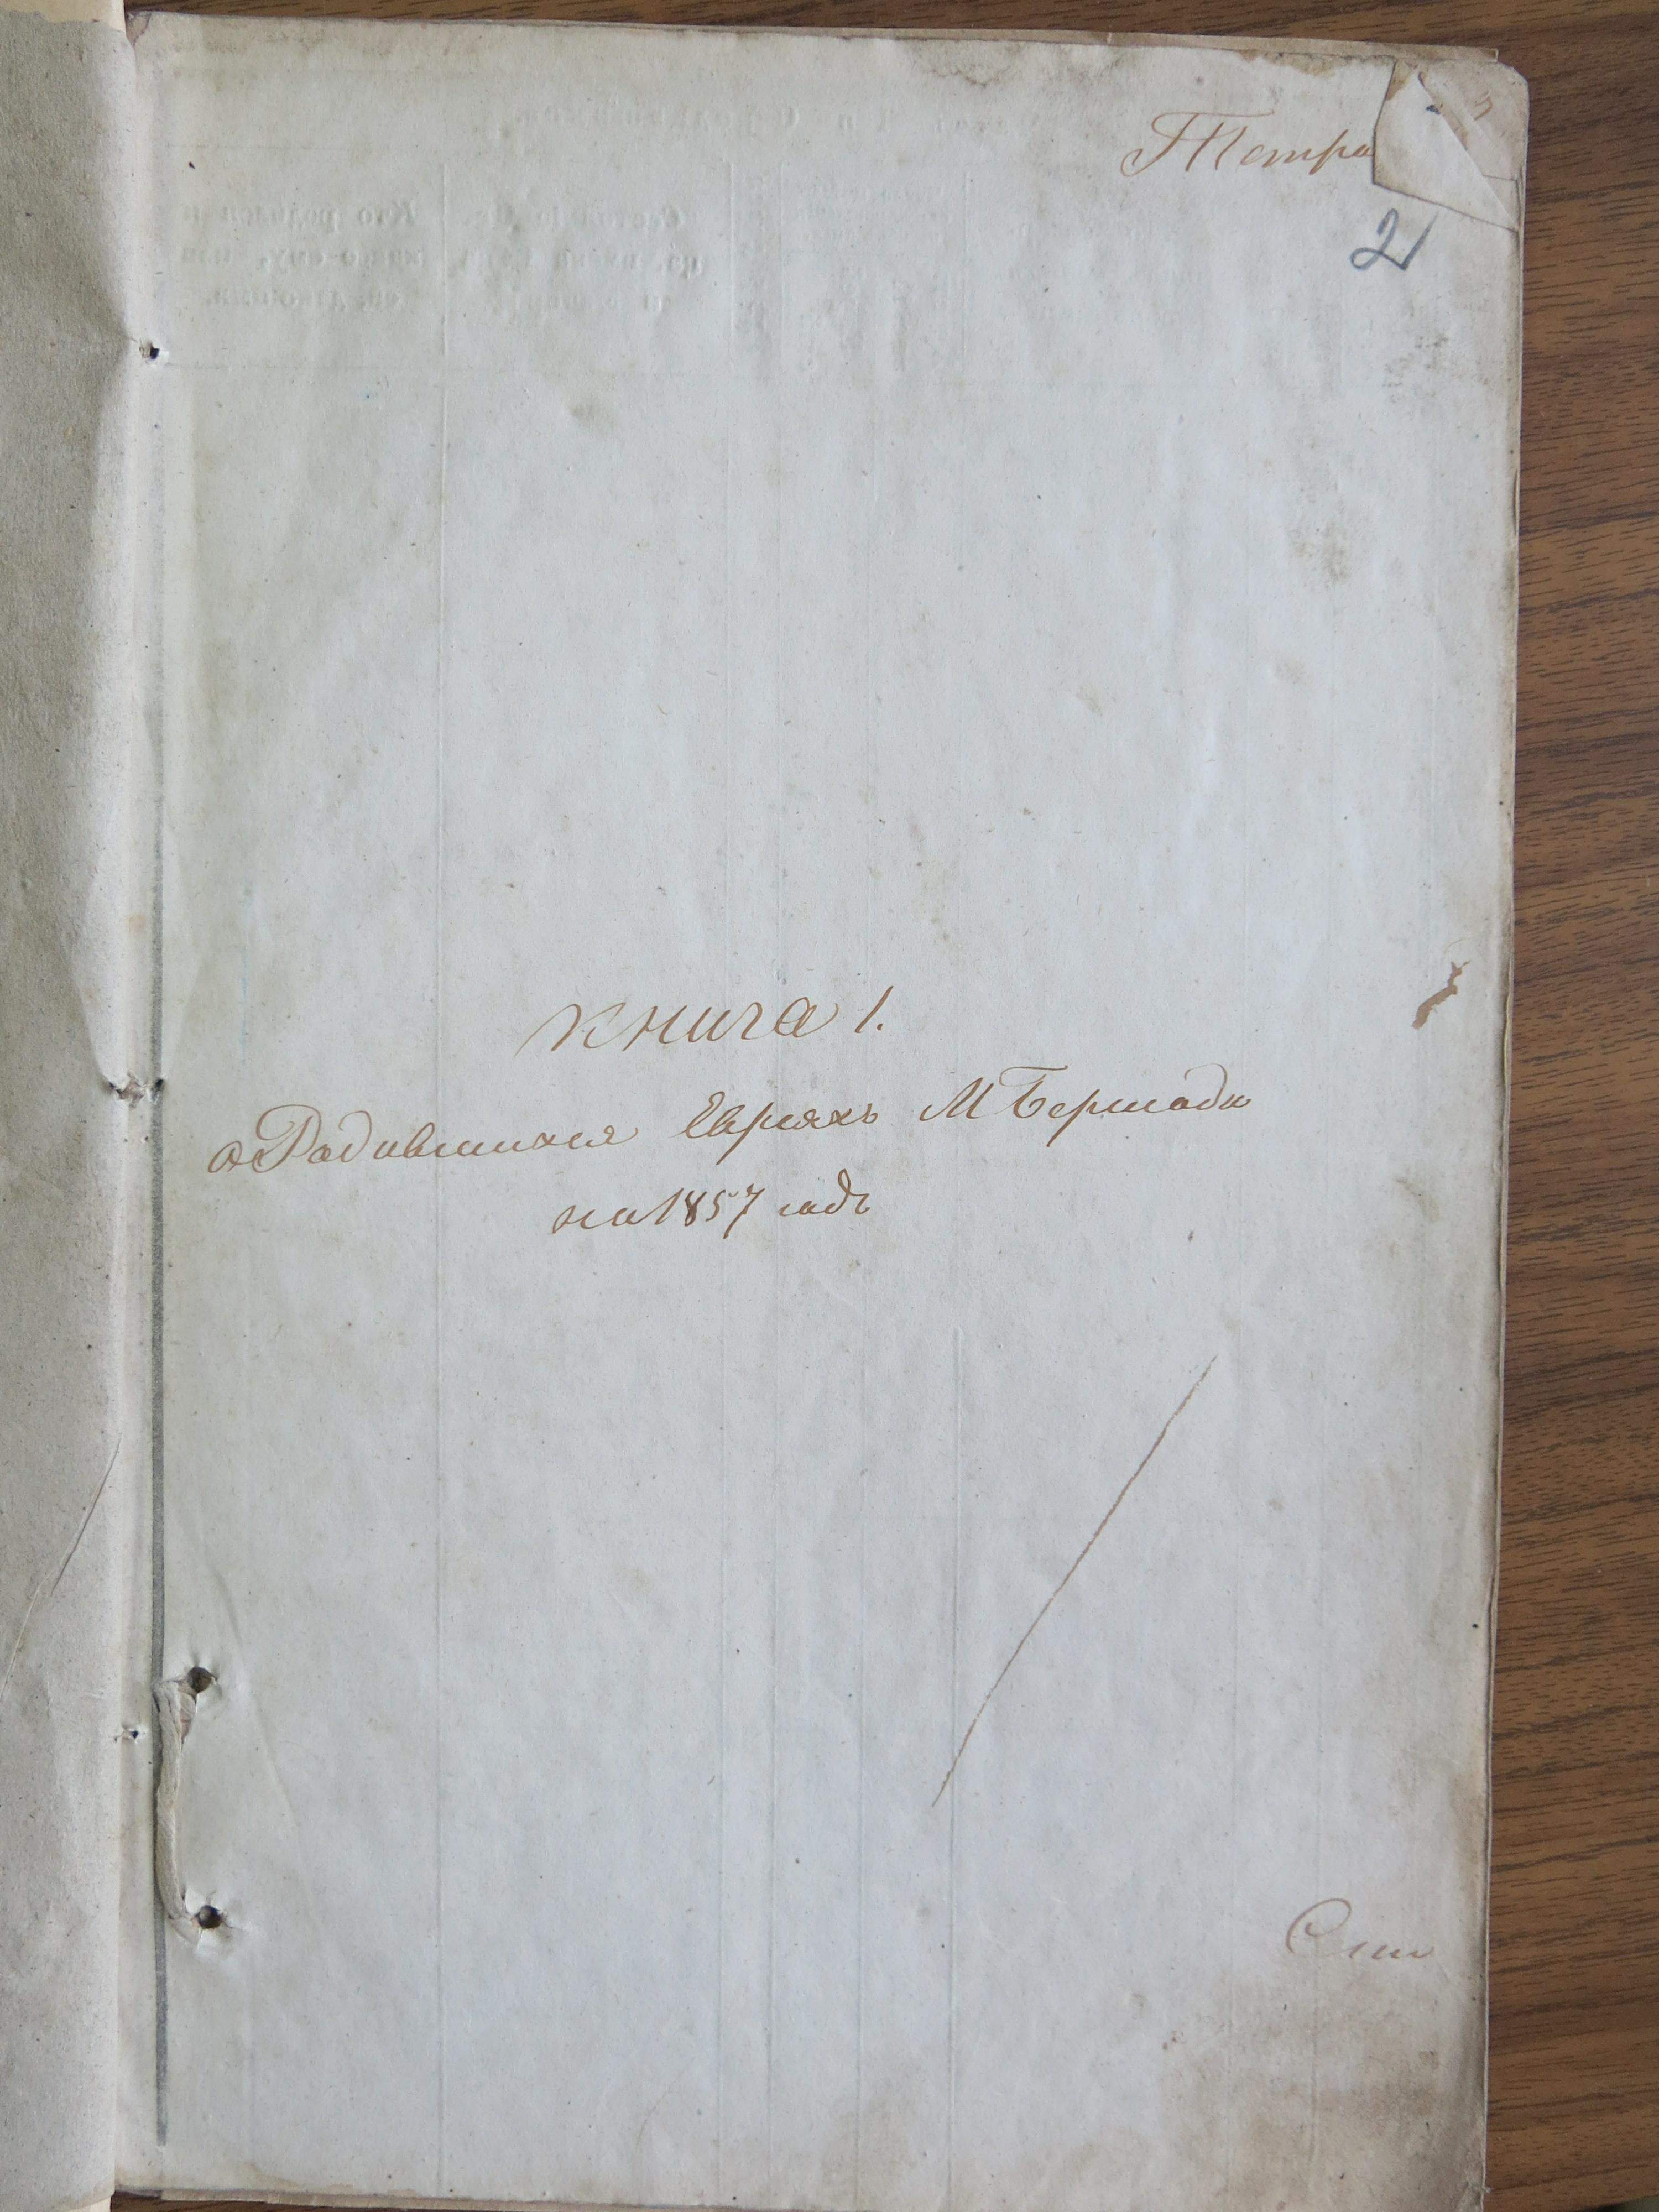 Тетра
2
Книга 1.
о Родившихся Евреяхъ М Бершади
на 1857 годъ